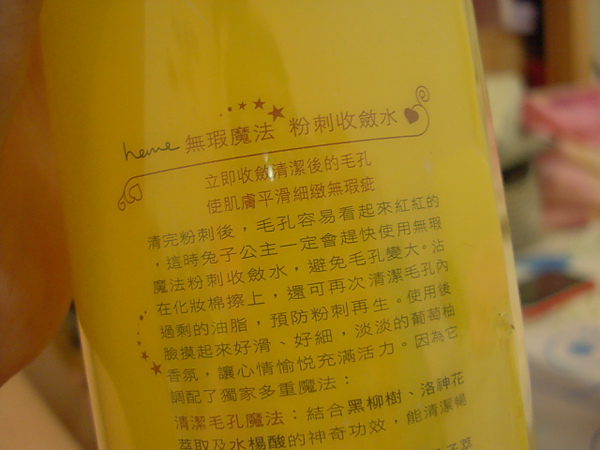 heme 無瑕魔法 粉刺收斂水
立即收斂清潔後的毛孔
使肌膚平滑細緻無瑕疵
清完粉刺後，毛孔容易看起來紅紅的
，這時兔子公主一定會趕快使用無瑕
魔法粉刺收斂水，避免毛孔變大。沾
在化妝棉擦上，還可再次清潔毛孔內
過剩的油脂，預防粉刺再生。使用後
臉摸起來好滑、好細，淡淡的葡萄柚
香氛，讓心情愉悅充滿活力。因為它
調配了獨家多重魔法：
清潔毛孔魔法：結合黑柳樹、洛神花
萃取及水楊酸的神奇功效，能清潔暢
子萃